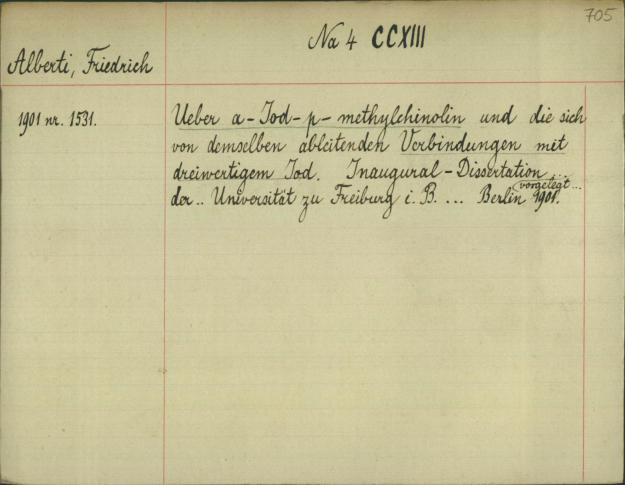 705
Na 4 CCXIII
Alberti, Friedrich
1901 nr. 1531.
Ueber a-Jod-p-methylchinolin und die sich
von demselben ableitenden Verbindungen mit
dreiwertigem Jod. Inaugural-Dissertation ..
vorgelegt...
der .. Universität zu Freiburg i. B. ... Berlin 1901.